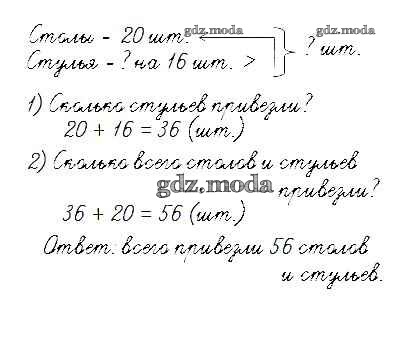 Столы - 20 шт. gdz.moda gdz.moda
Стулья - ? на 16 шт. > ? шт.
1) Сколько стульев привезли?
20 + 16 = 36 (шт.)
2) Сколько всего столов и стульев
gdz.moda привезли?
36 + 20 = 56 (шт.)
Ответ: всего привезли 56 столов
и стульев.